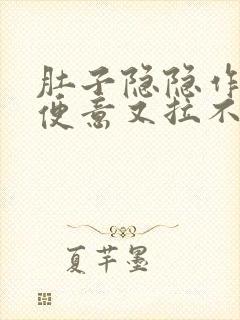 肚子隐隐作
便意又拉不
夏芊墨